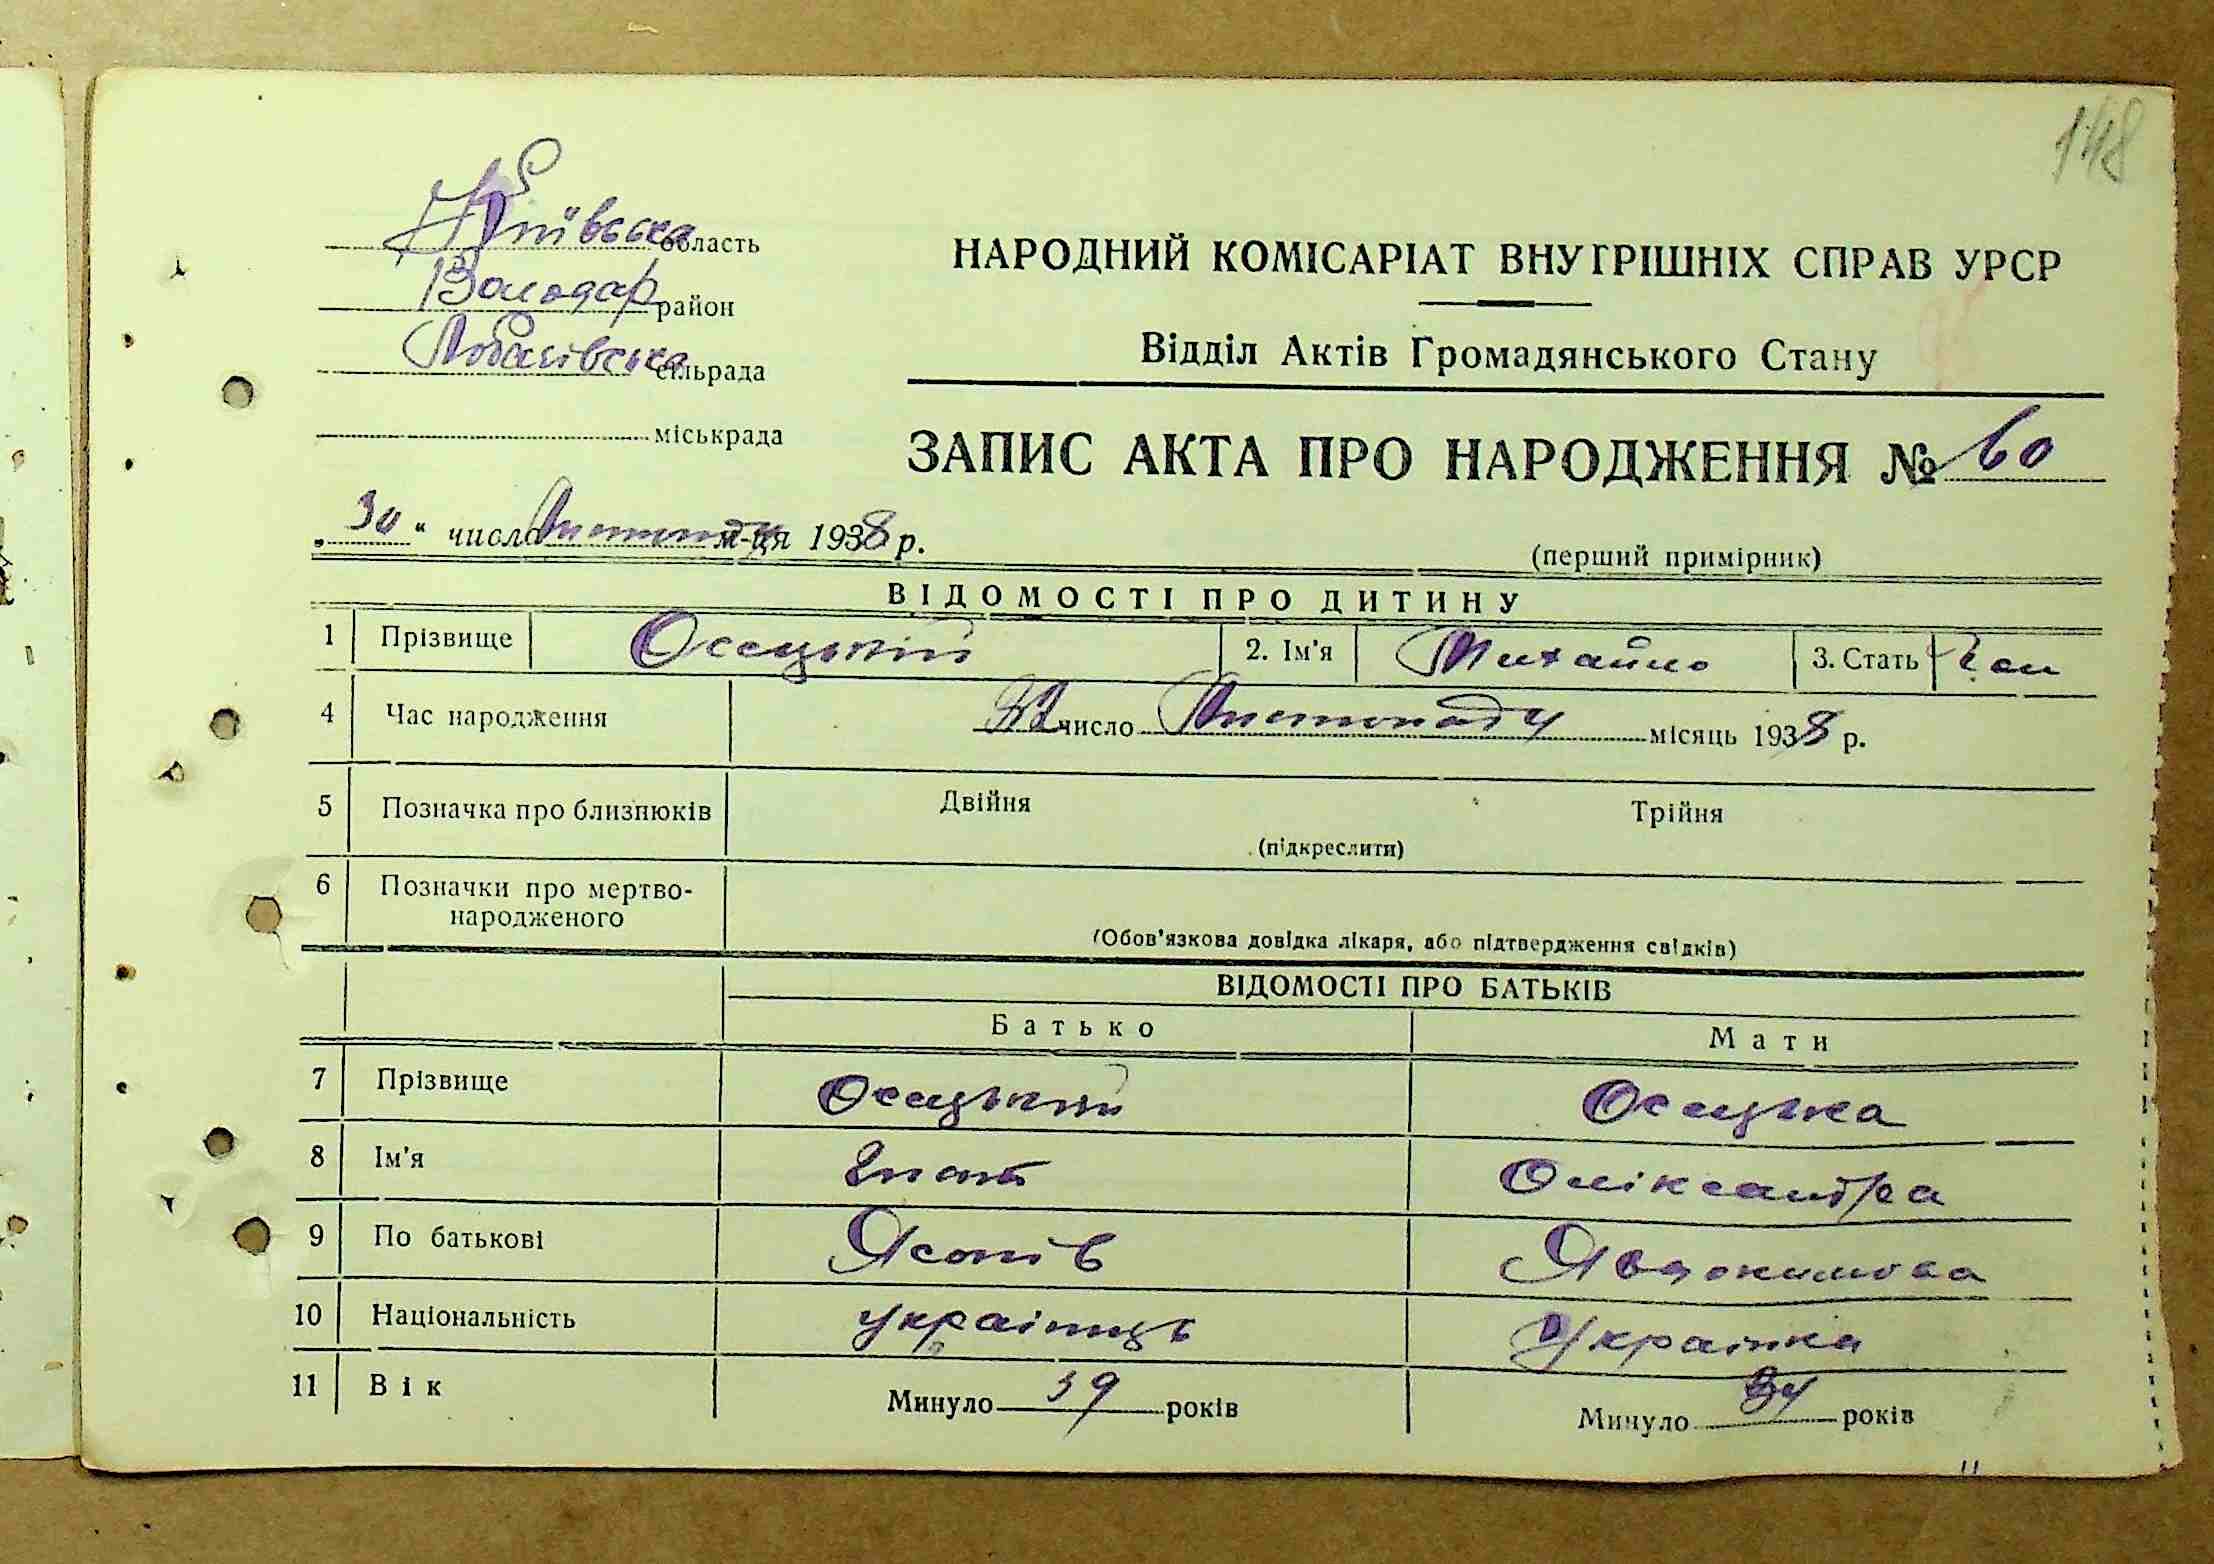 148
Київська область
Володар район
Лобачівська сільрада
міськрада
НАРОДНИЙ КОМІСАРІАТ ВНУТРІШНІХ СПРАВ УРСР
Відділ Актів Громадянського Стану
ЗАПИС АКТА ПРО НАРОДЖЕННЯ № 60
„30“ числа листопаду м-ця 1938 р.
(перший примірник)
ВІДОМОСТІ ПРО ДИТИНУ
1 Прізвище Осецький 2. Ім'я Михайло 3. Стать чол
4 Час народження число Листопаду місяць 1938 р.
5 Позначка про близнюків Двійня Трійня
(підкреслити)
6 Позначки про мертво-
народженого
(Обов'язкова довідка лікаря, або підтвердження свідків)
ВІДОМОСТІ ПРО БАТЬКІВ
Батько Мати
7 Прізвище Осецький Осецька
8 Ім'я Гнат Оліксандра
9 По батькові Ясонів Явдокимова
10 Національність українець Українка
11 Вік Минуло 39 років Минуло 34 років